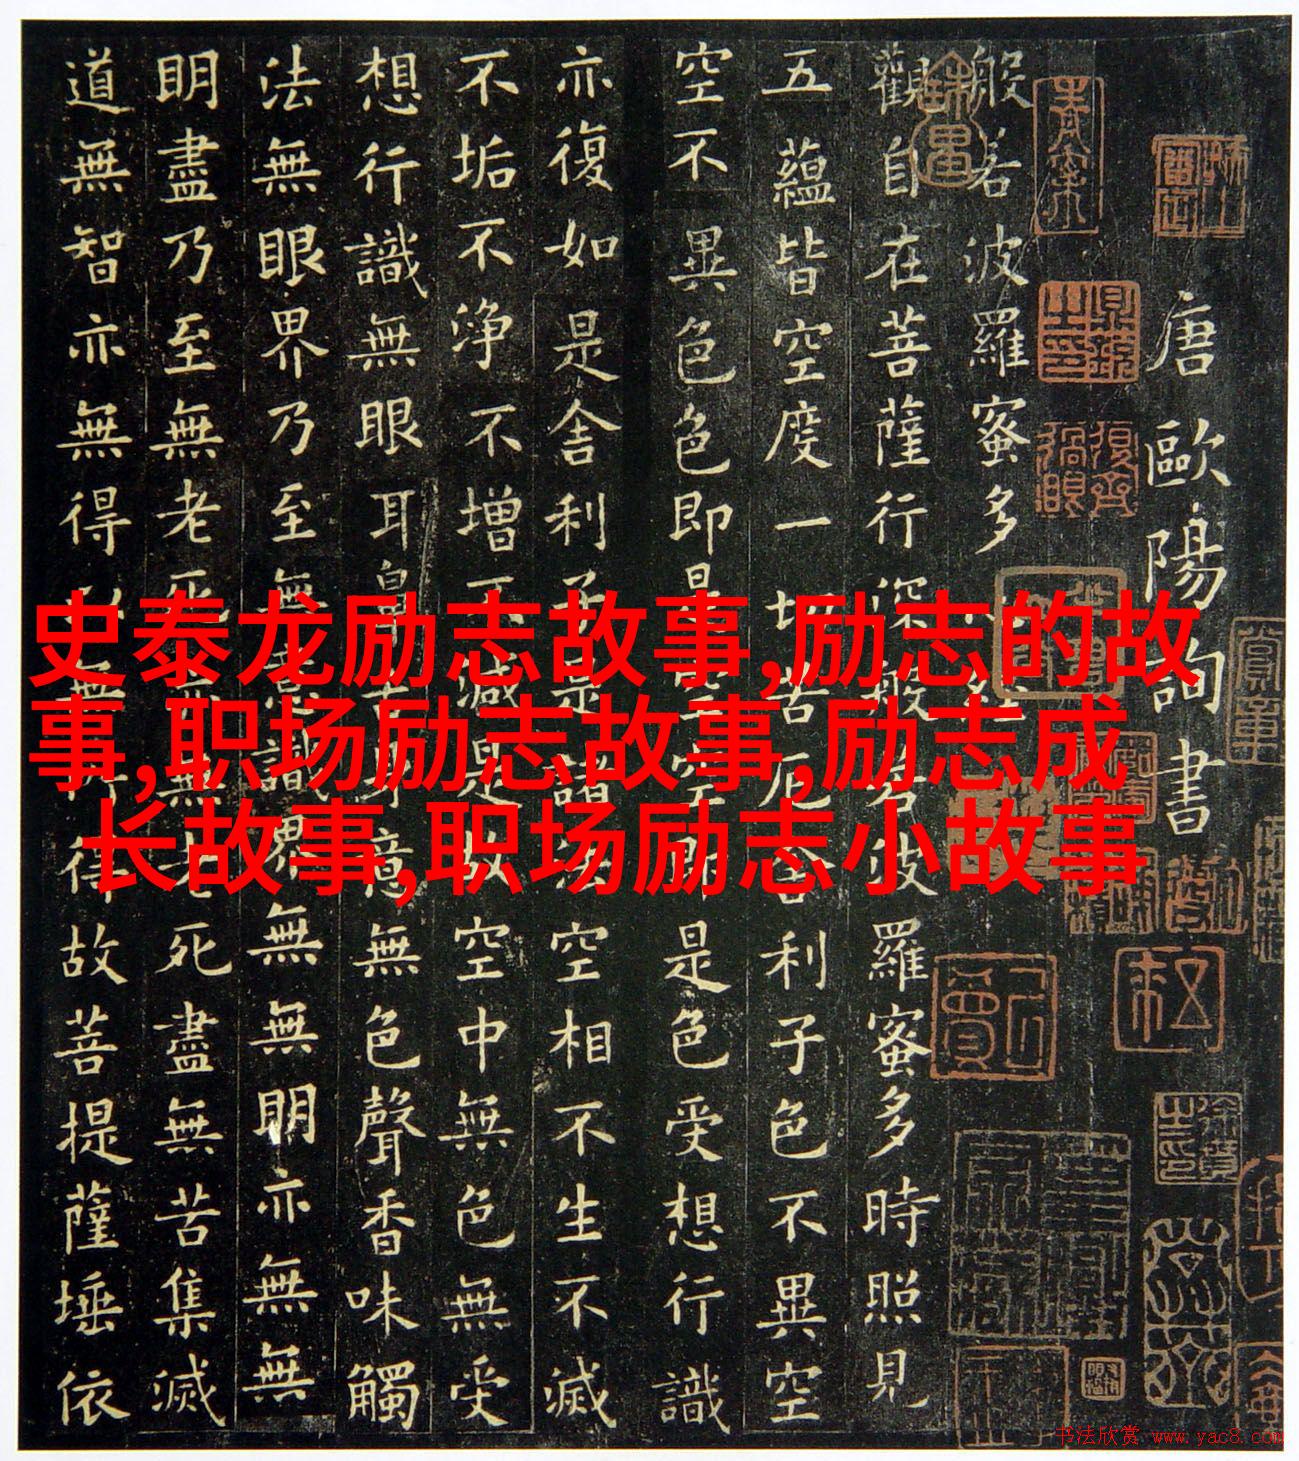 唐歐陽詢書
般若波羅蜜多心經
觀自在菩薩行深般若波羅蜜多時照見
五蘊皆空度一切苦厄舍利子色不異空
空不異色色即是空空即是色受想行識
亦復如是舍利子是諸法空相不生不滅
不垢不淨不增不減是故空中無色無受
想行識無眼耳鼻舌身意無色聲香味觸
法無眼界乃至無意識界無無明亦無無
明盡乃至無老死亦無老死盡無苦集滅
道無智亦無得以無所得故菩提薩埵依
史泰龙励志故事,励志的故
事,职场励志故事,励志成
长故事,职场励志小故事
书法欣赏 www.yac8.com